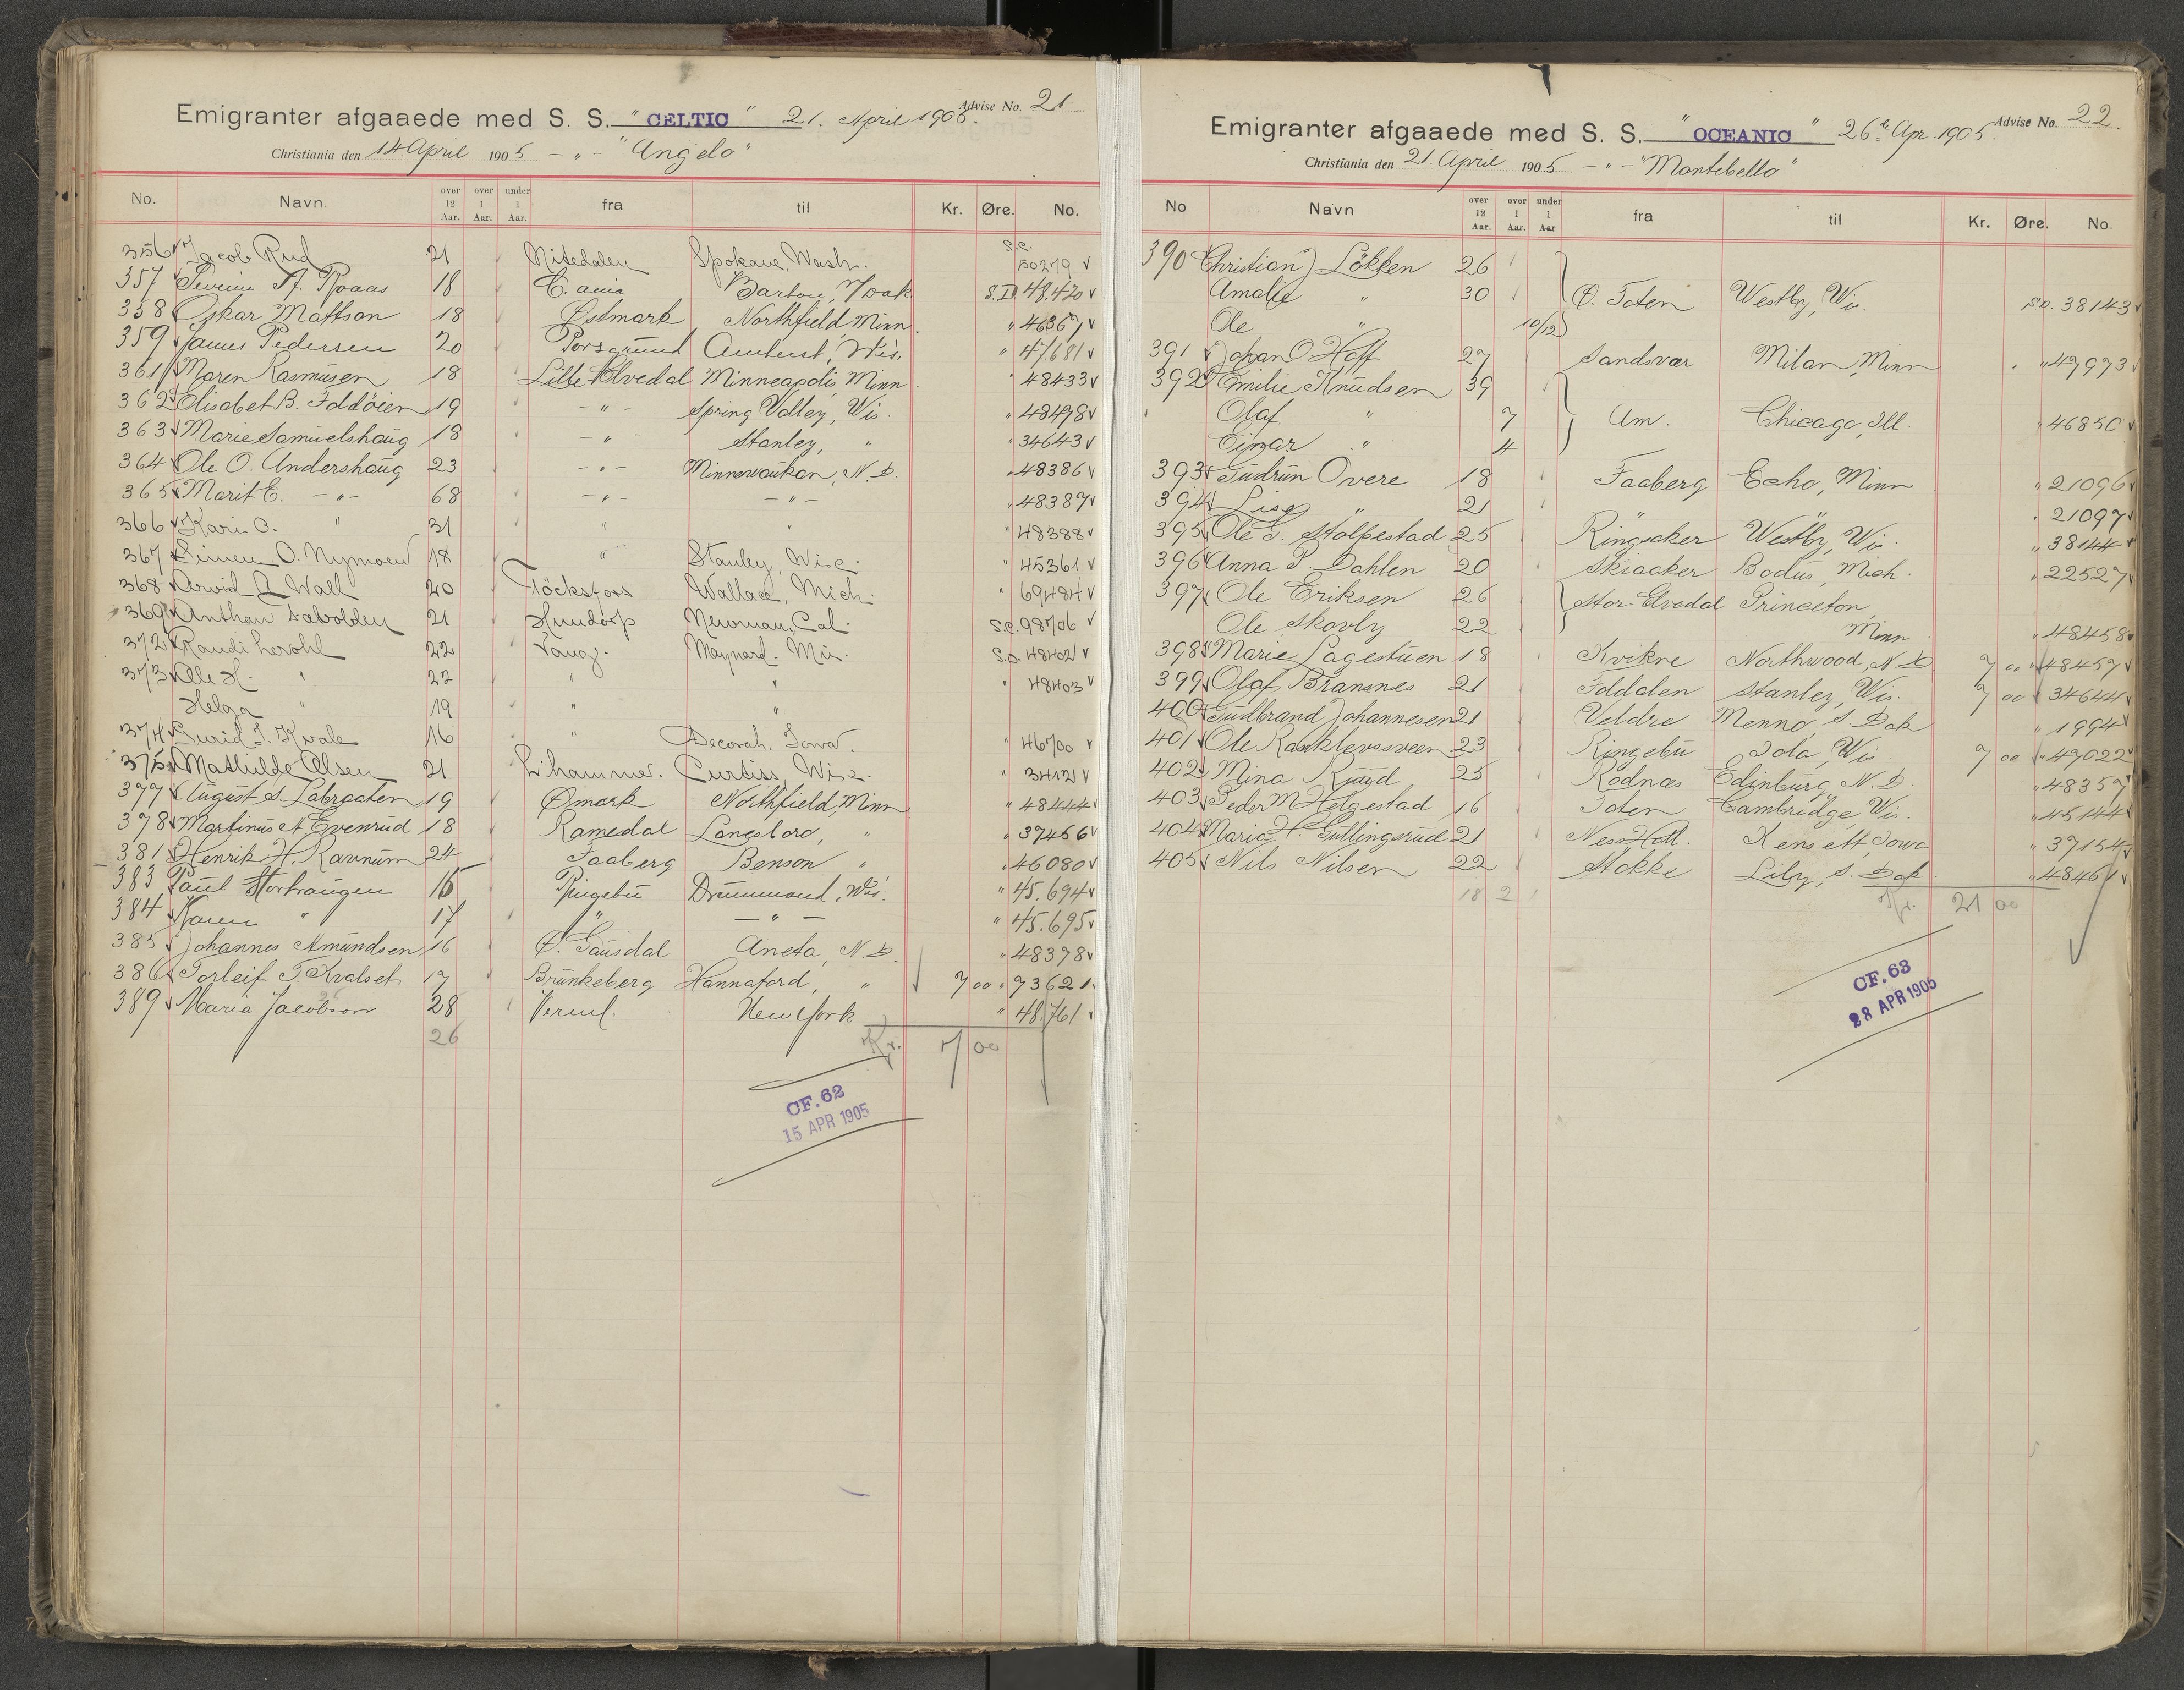 Emigranter afgaaede med S. S. "CELTIC" 21. April 1905. Advise No. 21
Christiania den 14 April 1905 — " — "Angelo"
No. Navn. over 12 Aar. over 1 Aar. under 1 Aar. fra til Kr. Øre. No.
356 Jacob Rud 21 Nitedalen Spokane, Wash. S.C. 50279
357 18 C.ania Barton, N Dak S.D. 48.470
358 Oskar Mattson 18 Østmark Northfield Minn. " 46367
359 James Pedersen 20 Porsgrund Amherst, Wis. " 47681
361 Maren Rasmusen 18 Lille Elvedal Minneapolis Minn " 48433
362 Elisabet B. Foldöien 19 — " — Spring Valley, Wis. " 48478
363 Marie Samuelshaug 18 — " — Stanley, " " 34643
364 Ole O. Andershaug 23 — " — Minnewaukan, N. D. " 48386
365 Marit E. — " — 68 — " — — " — " 48387
366 Kari O. " 31 " " " 48388
367 Simen O. Nymoen 18 " Stanley, Wisc. " 45361
368 Arvid A Wall 20 Töcksfors Wallace, Mich. " 69484
369 Anthon 21 Hundorp Newman, Cal. S.C. 98706
372 Randi Lerohl 22 Vang. Maynard. Min. S.D. 48402
373 Ole H. " 22 " " " 48403
Helga " 19 " "
374 Gurid T. Kvale 16 " Decorah, Iowa. " 46700
375 Mathilde Olsen 21 L.hammer. Curtiss, Wisc. " 34121
377 August S. Labraaten 19 Ømark Northfield, Minn " 48444
378 Martinus A Evenrud 18 Ramedal Lanesboro, " " 37456
381 Henrik H. Ravnum 24 Faaberg Benson " " 46080
383 Paul Stortraugen 16 Ringebu Drummond, Wis. " 45.694
384 Karen " 17 " — " — " 45.695
385 Johannes Amundsen 16 Ø. Gausdal Aneta, N. D. " 48378
386 Torleif T. Kvalset 17 Brunkeberg Hannaford, " 7 00 " 73621
389 Maria Jacobson 28 Verml. New York " 48.761
26 Kr. 7 00
CF. 62
15 APR 1905
Emigranter afgaaede med S. S. "OCEANIC" 26de Apr. 1905. Advise No. 22
Christiania den 21. April 1905 — " — "Montebello"
No Navn over 12 Aar. over 1 Aar. under 1 Aar fra til Kr. Øre. No.
390 Christian Lökken 26
Amalie " 30 Ø. Toten Westby, Wis. S.D. 38143
Ole " 10/12
391 Johan O Hoff 27 Sandsvær Milan, Minn " 47973
392 Emilie Knudsen 39
Olaf " 7 Am. Chicago, Ill. " 46850
Einar " 4
393 Gudrun Overe 18 Faaberg Echo, Minn " 21096
394 Lise " 21 " " " 21097
395 Ole G. Stolpestad 25 Ringsaker Westby, Wis. " 38144
396 Anna P. Dahlen 20 Skiaaker Bodus, Mich. " 22527
397 Ole Eriksen 26 Stor-Elvedal Princeton,
Ole Skovly 22 Minn " 48458
398 Marie Lagestuen 18 Kvikne Northwood, N. D 7 00 " 48457
399 Olaf Bransnes 21 Foldalen Stanley, Wis. 7 00 " 34644
400 Gudbrand Johannesen 21 Veldre Menno, S. Dak " 1994
401 Ole Ranklevssveen 23 Ringebu Iola, Wis 7 00 " 49022
402 Mina Ruud 25 Rödnæs Edinburg, N. D. " 48357
403 Peder M Helgestad 16 Toten Cambridge, Wis. " 45144
404 Maria H. Gullingsrud 21 Ness Hall. Kensett, Iowa " 39154
405 Nils Nilsen 22 Stokke Lily, S. Dak " 48461
18 2 Kr. 21 00
CF. 63
28 APR 1905